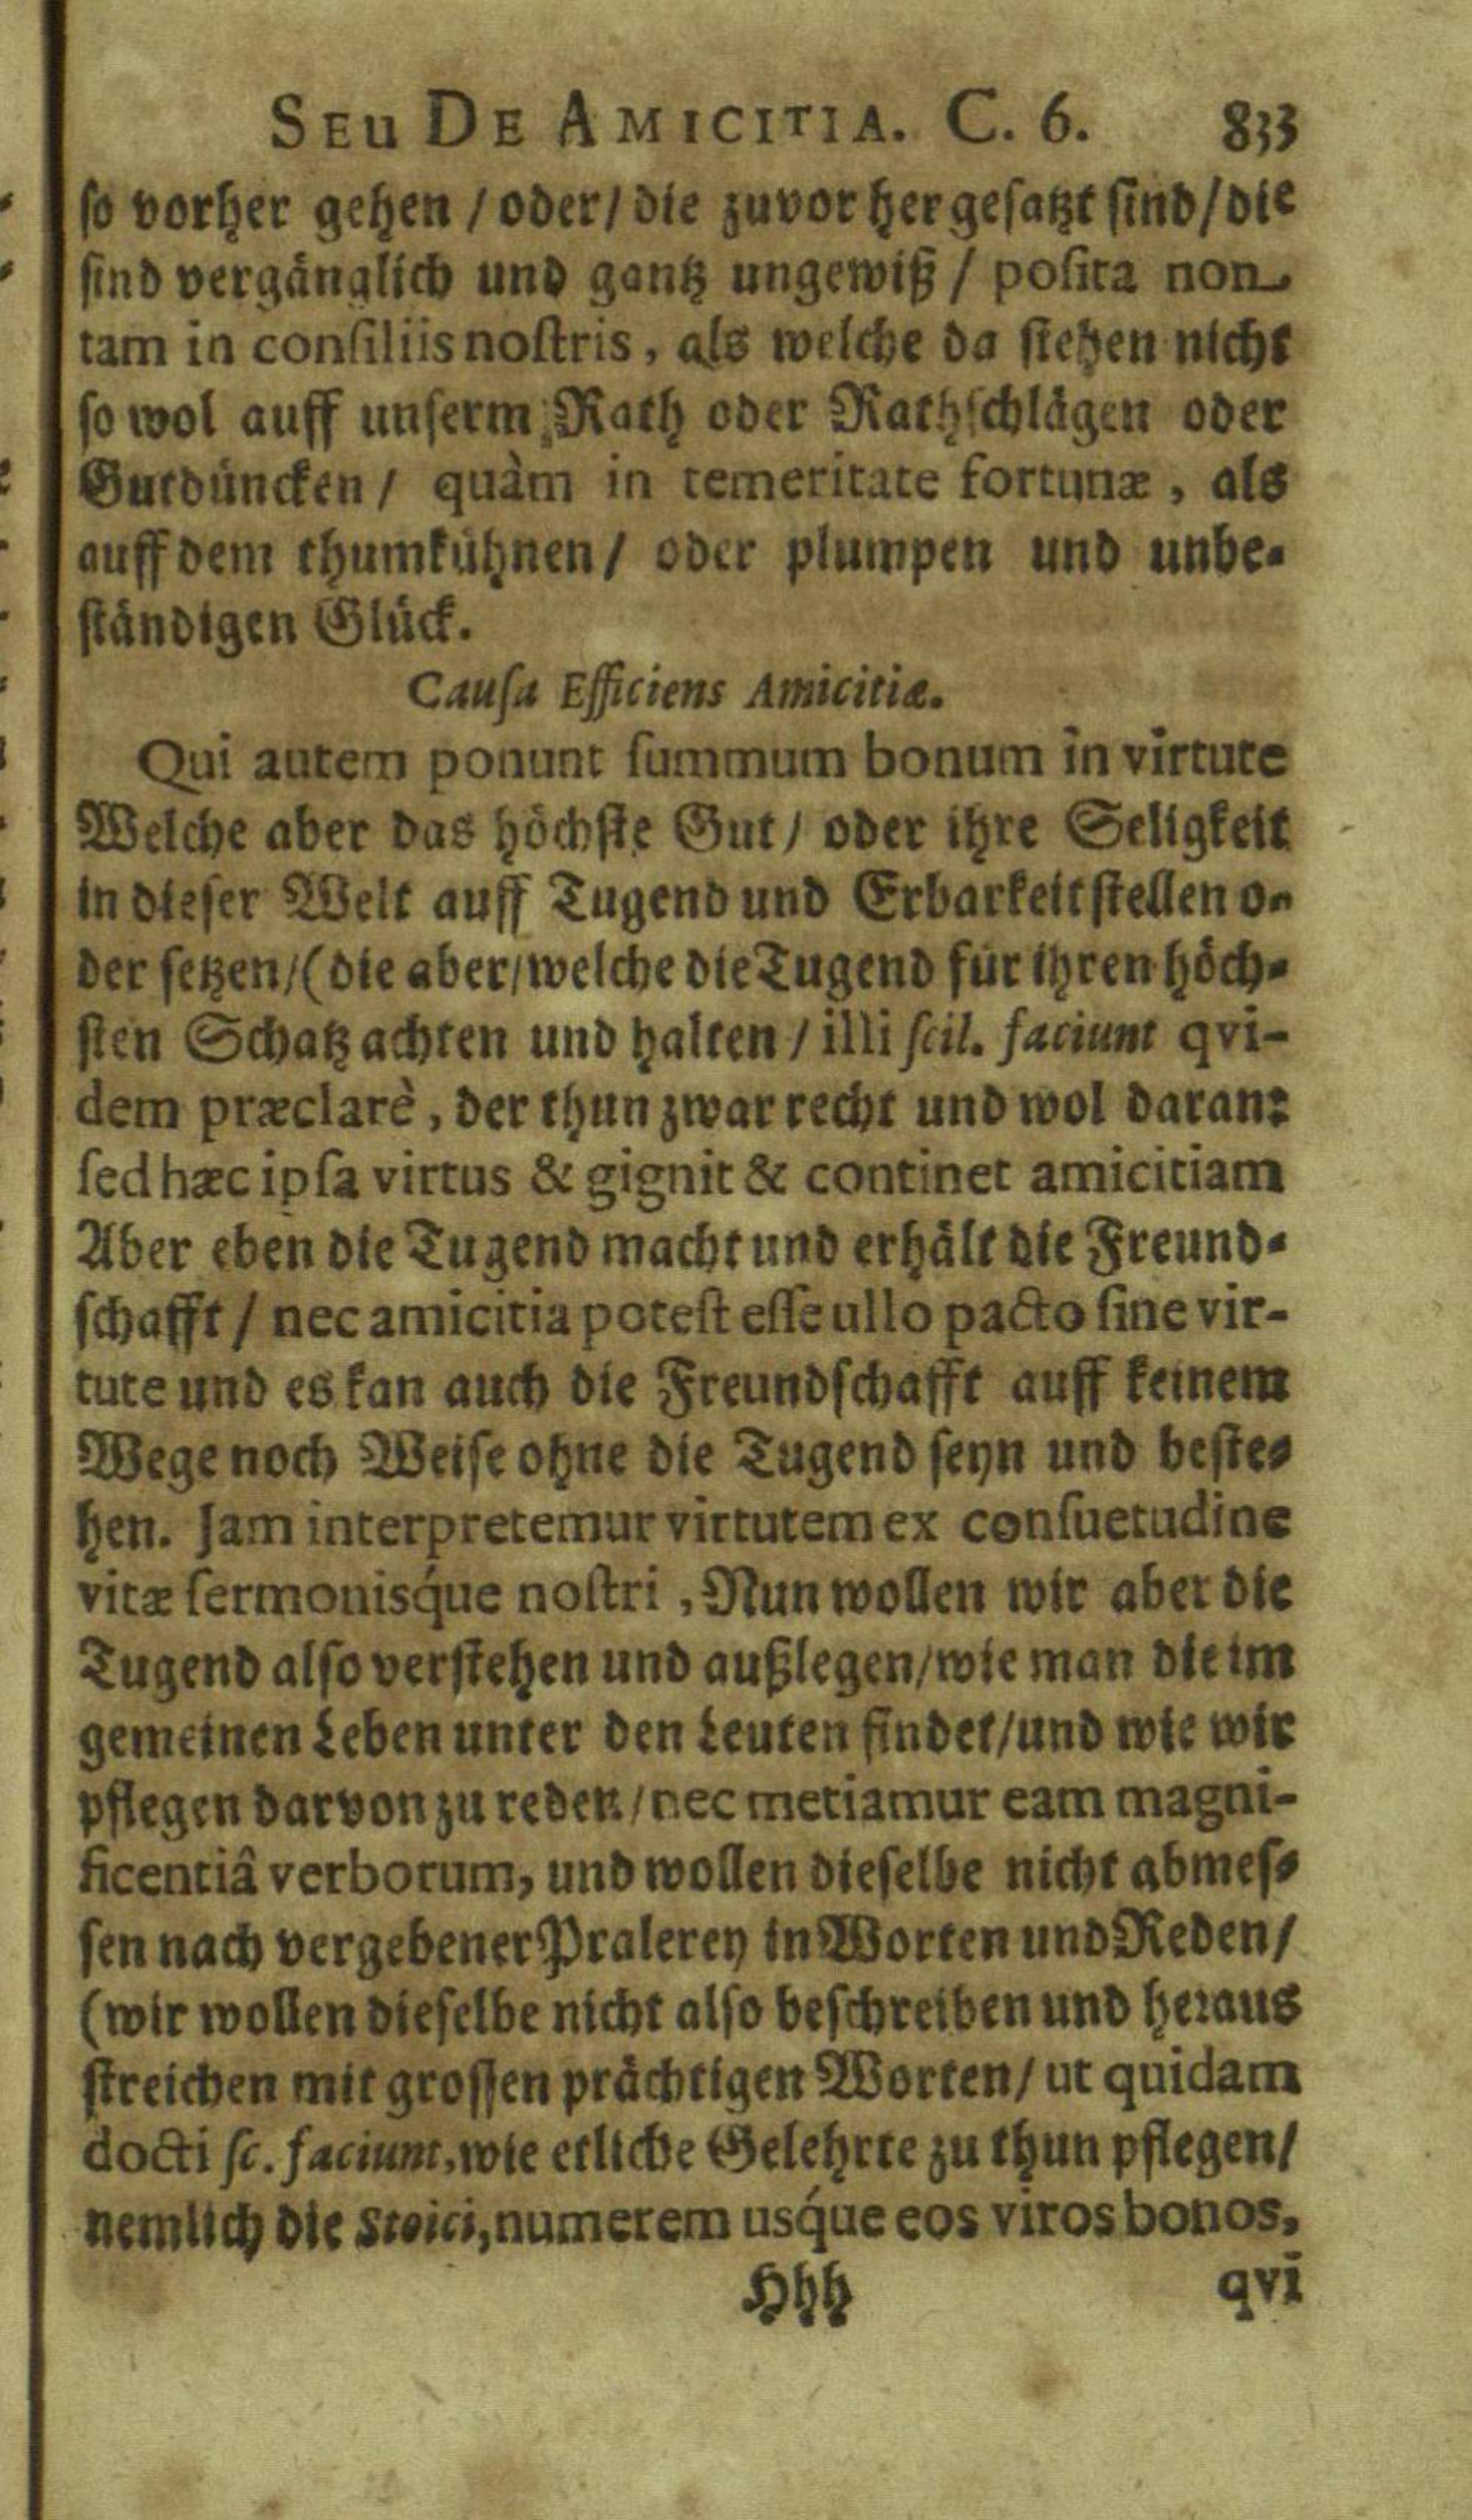 SEu DE AMICITIA. C. 6. 833
ſo vorher gehen / oder / die zuvor her geſatzt ſind / die
ſind vergänglich und gantz ungewiß / poſita non
tam in conſiliis noſtris, als welche da ſtehen nicht
ſo wol auff unſerm Rath oder Rathſchlägen oder
Gutdüncken / quàm in temeritate fortunæ, als
auff dem thumkühnen / oder plumpen und unbe-
ſtändigen Glück.
Cauſa Efficiens Amicitiæ.
Qui autem ponunt ſummum bonum in virtute
Welche aber das höchſte Gut / oder ihre Seligkeit
in dieſer Welt auff Tugend und Erbarkeit ſtellen o-
der ſetzen / (die aber / welche die Tugend für ihren höch-
ſten Schatz achten und halten / illi ſcil. faciunt qvi-
dem præclarè, der thun zwar recht und wol daran:
ſed hæc ipſa virtus & gignit & continet amicitiam
Aber eben die Tugend macht und erhält die Freund-
ſchafft / nec amicitia poteſt eſſe ullo pacto ſine vir-
tute und es kan auch die Freundſchafft auff keinem
Wege noch Weiſe ohne die Tugend ſeyn und beſte-
hen. Jam interpretemur virtutem ex conſuetudine
vitæ ſermonisq́ue noſtri, Nun wollen wir aber die
Tugend alſo verſtehen und außlegen / wie man die im
gemeinen Leben unter den Leuten findet / und wie wir
pflegen darvon zu reden / nec metiamur eam magni-
ficentiâ verborum, und wollen dieſelbe nicht abmeſ-
ſen nach vergebener Pralerey in Worten und Reden /
(wir wollen dieſelbe nicht alſo beſchreiben und heraus
ſtreichen mit groſſen prächtigen Worten / ut quidam
docti ſc. faciunt, wie etliche Gelehrte zu thun pflegen /
nemlich die Stoici, numerem usq́ue eos viros bonos,
Hhh qvi